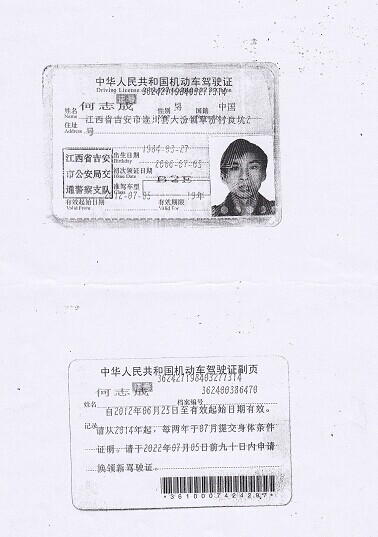 中华人民共和国机动车驾驶证
Driving License
362427198403277314
姓名 何志成 性别 男 国籍 中国
Name
住址 江西省吉安市遂川县大汾镇
Address 号
出生日期 1984-03-27
Birthday
江西省吉安
市公安局交
通警察支队
初次领证日期 2006-07-05
Issue Date
准驾车型 B2E
Class
有效起始日期 2012-07-05 有效期限 10年
Valid From Valid For
中华人民共和国机动车驾驶证副页
362427198403277314
姓名 何志成 档案编号 362400386470
记录 自2012年06月25日至有效起始日期有效。
请从2014年起，每两年于07月提交身体条件
证明。请于2022年07月05日前九十日内申请
换领新驾驶证。
*3610007424297*